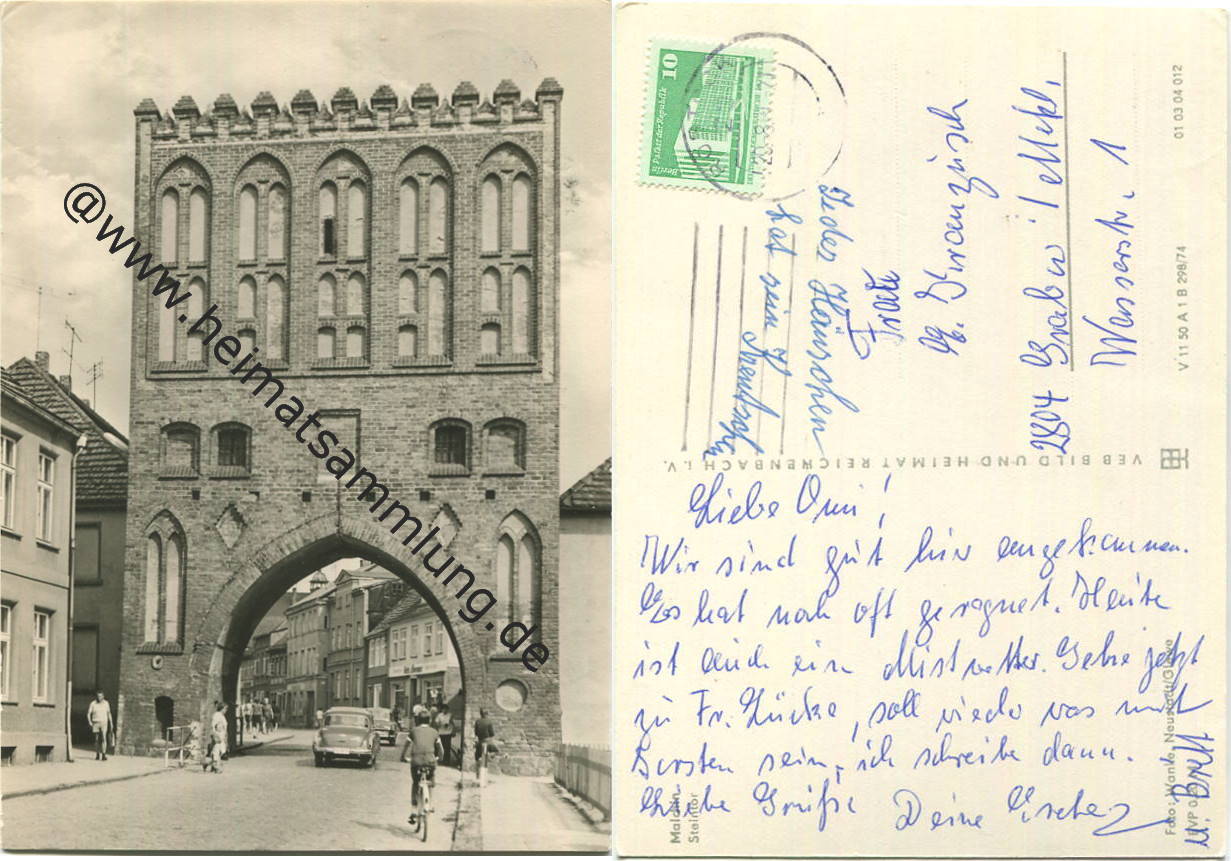 @www.heimatsammlung.de
10
Berlin, Palast der Republik
Jedes Häuschen
hat sein
Frau
E. Franzisch
2804 Grabow i/Meckl.
Wasserstr. 1
V 11 50 A 1 B 298/74
01 03 04 012
VEB BILD UND HEIMAT REICHENBACH i. V.
Liebe Omi!
Wir sind gut hier angekommen.
Es hat noch oft geregnet. Heute
ist auch ein Mistwetter. Gehe jetzt
zu Fr. Lücke, soll wieder was mit
sein, ich schreibe dann.
Liebe Grüße Deine
u. Britt
Malchin
Steintor
Foto: Wanke, Neustadt/Glewe